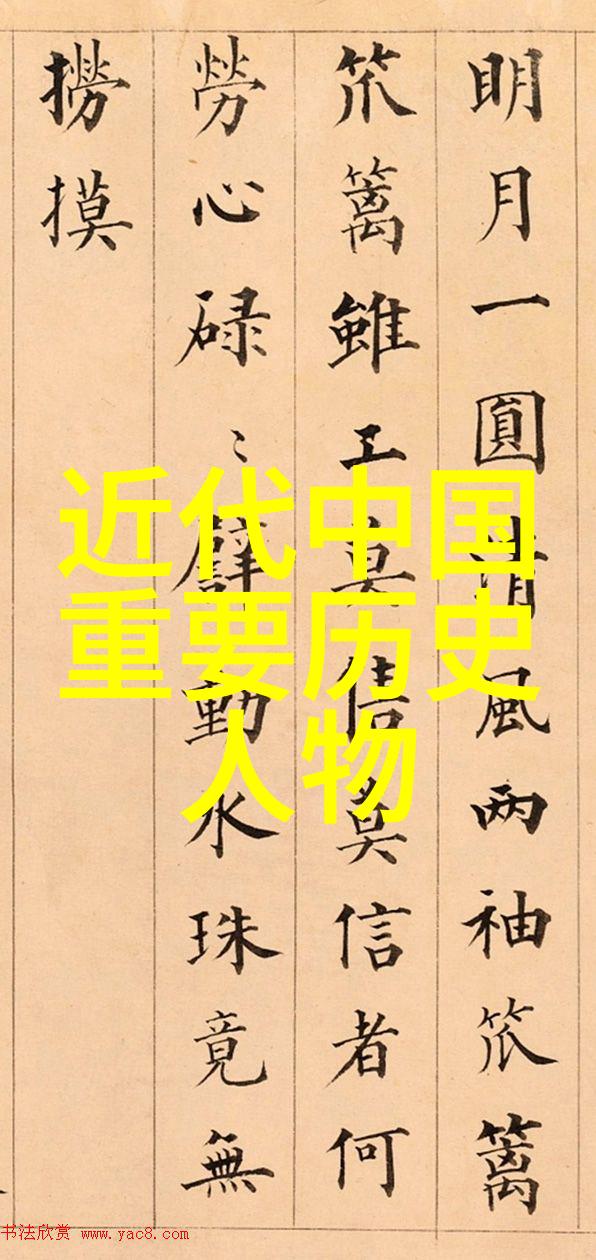 近代中国
重要历史
人物
明月一圓清風两袖笊篱
笊篱雖工莫信莫信者何
勞心碌〻譬動水珠竟無
撈摸
书法欣赏 www.yac8.com